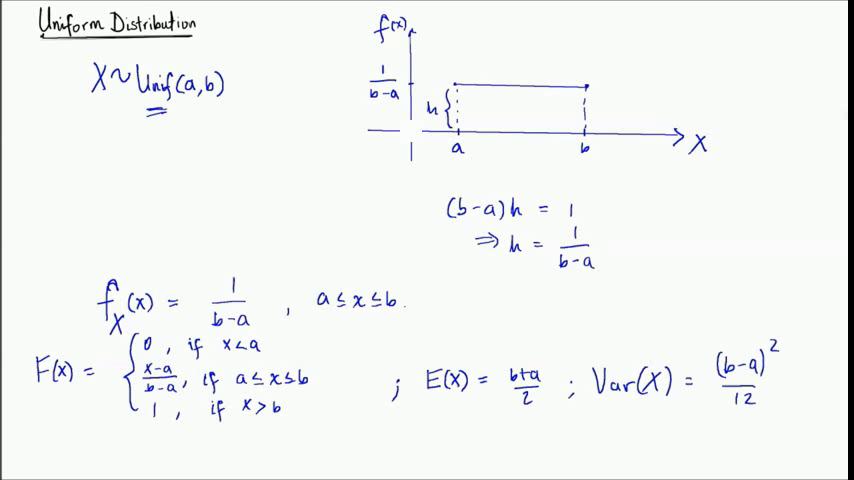 Uniform Distribution
X ~ Unif(a,b)
f(x)
1/(b-a)
h {
a
b
X
(b-a)h = 1
⇒ h = 1/(b-a)
f_X(x) = 1/(b-a) , a ≤ x ≤ b.
F(x) = { 0 , if x < a
(x-a)/(b-a) , if a ≤ x ≤ b
1 , if x > b
; E(X) = (b+a)/2 ; Var(X) = (b-a)²/12